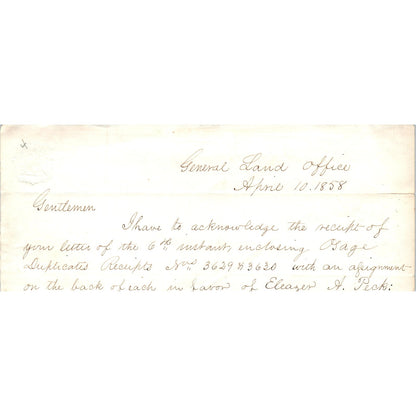 General Land Office
April 10. 1858
Gentlemen
I have to acknowledge the receipt of
your letter of the 6th instant, inclosing Osage
Duplicates Receipts Nos. 3629 & 3630 with an assignment
on the back of each in favor of Eleazer A. Peck: